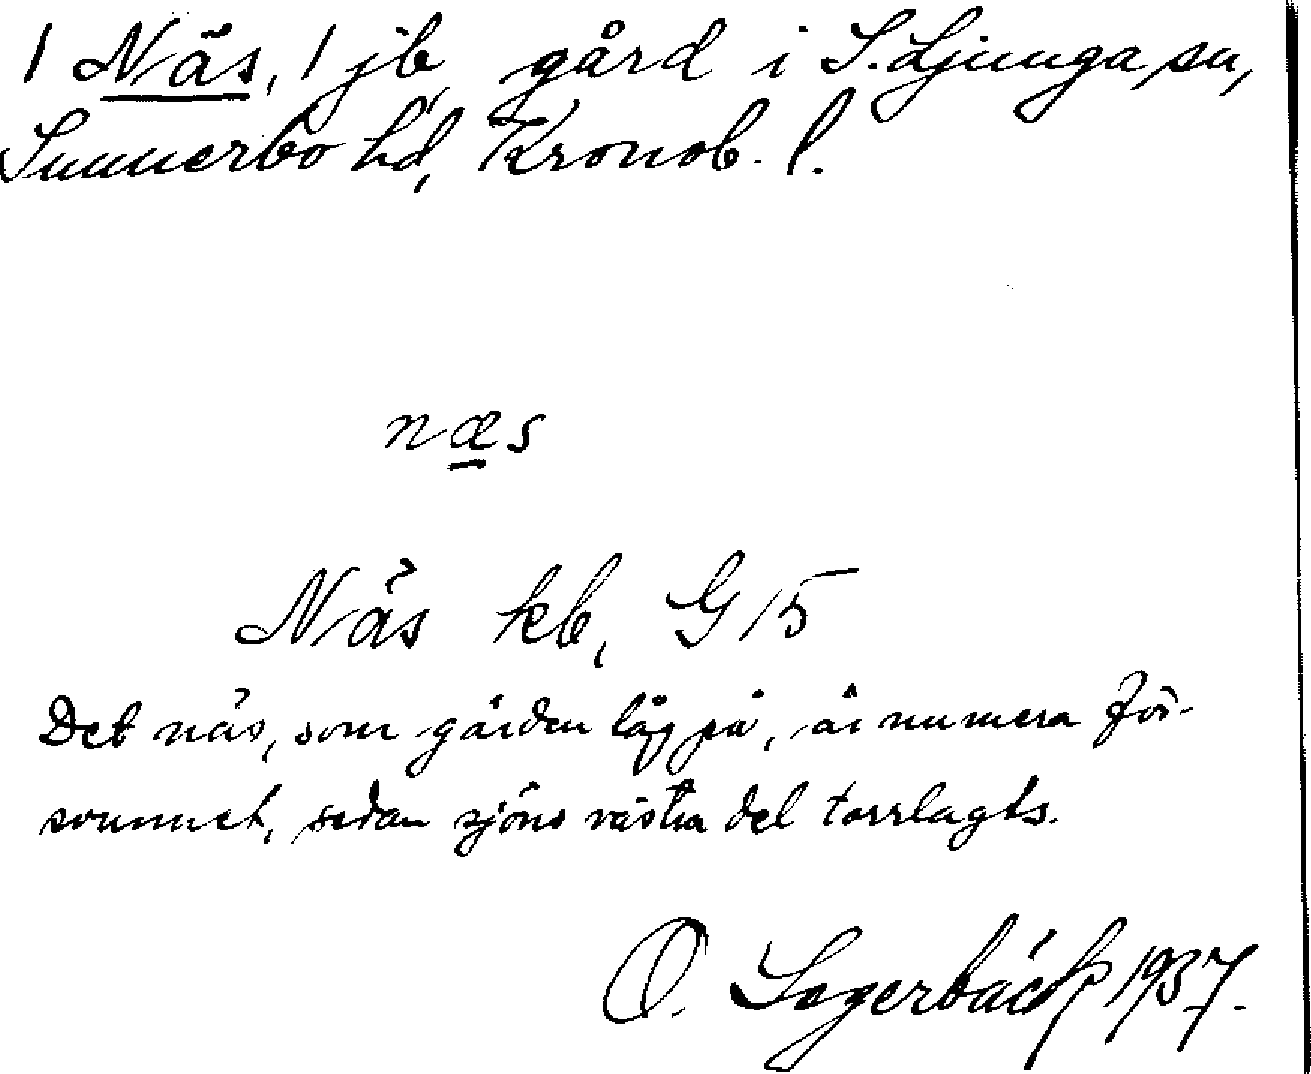 1 Näs, 1 jb, gård i S. Ljunga sn,
Sunnerbo hd, Kronob. l.
næs
Näs kb, G 15
Det näs, som gården låg på, är numera för-
svunnet, sedan sjöns västra del torrlagts.
O. Segerbäck 1937.